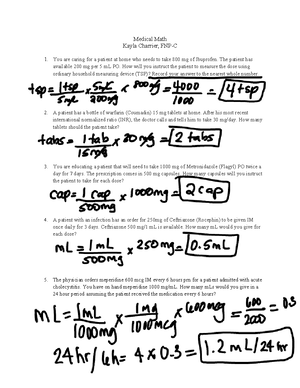 Medical Math
Kayla Charrier, FNP-C
1. You are caring for a patient at home who needs to take 800 mg of Ibuprofen. The patient has
available 200 mg per 5 mL PO. How will you instruct the patient to measure the dose using
ordinary household measuring device (TSP)? Record your answer to the nearest whole number.
tsp = 1tsp/5mL x 5mL/200mg x 800mg = 4000/1000 = 4tsp
2. A patient has a bottle of warfarin (Coumadin) 15 mg tablets at home. After his most recent
international normalized ratio (INR), the doctor calls and tells him to take 30 mg/day. How many
tablets should the patient take?
tabs = 1tab/15mg x 30mg = 2 tabs
3. You are educating a patient that will need to take 1000 mg of Metronidazole (Flagyl) PO twice a
day for 7 days. The prescription comes in 500 mg capsules. How many capsules will you instruct
the patient to take for each dose?
cap = 1 cap/500mg x 1000mg = 2 cap
4. A patient with an infection has an order for 250mg of Ceftriaxone (Rocephin) to be given IM
once daily for 3 days. Ceftriaxone 500 mg/1 mL is available. How many mL would you give for
each dose?
mL = 1mL/500mg x 250mg = 0.5mL
5. The physician orders meperidine 600 mcg IM every 6 hours prn for a patient admitted with acute
cholecystitis. You have on hand meperidine 1000 mg/mL. How many mLs would you give in a
24 hour period assuming the patient received the medication every 6 hours?
mL = 1mL/1000mg x 1mg/1000mcg x 600mcg = 600/2000 = 0.3
24hr/6h = 4 x 0.3 = 1.2 mL/24hr